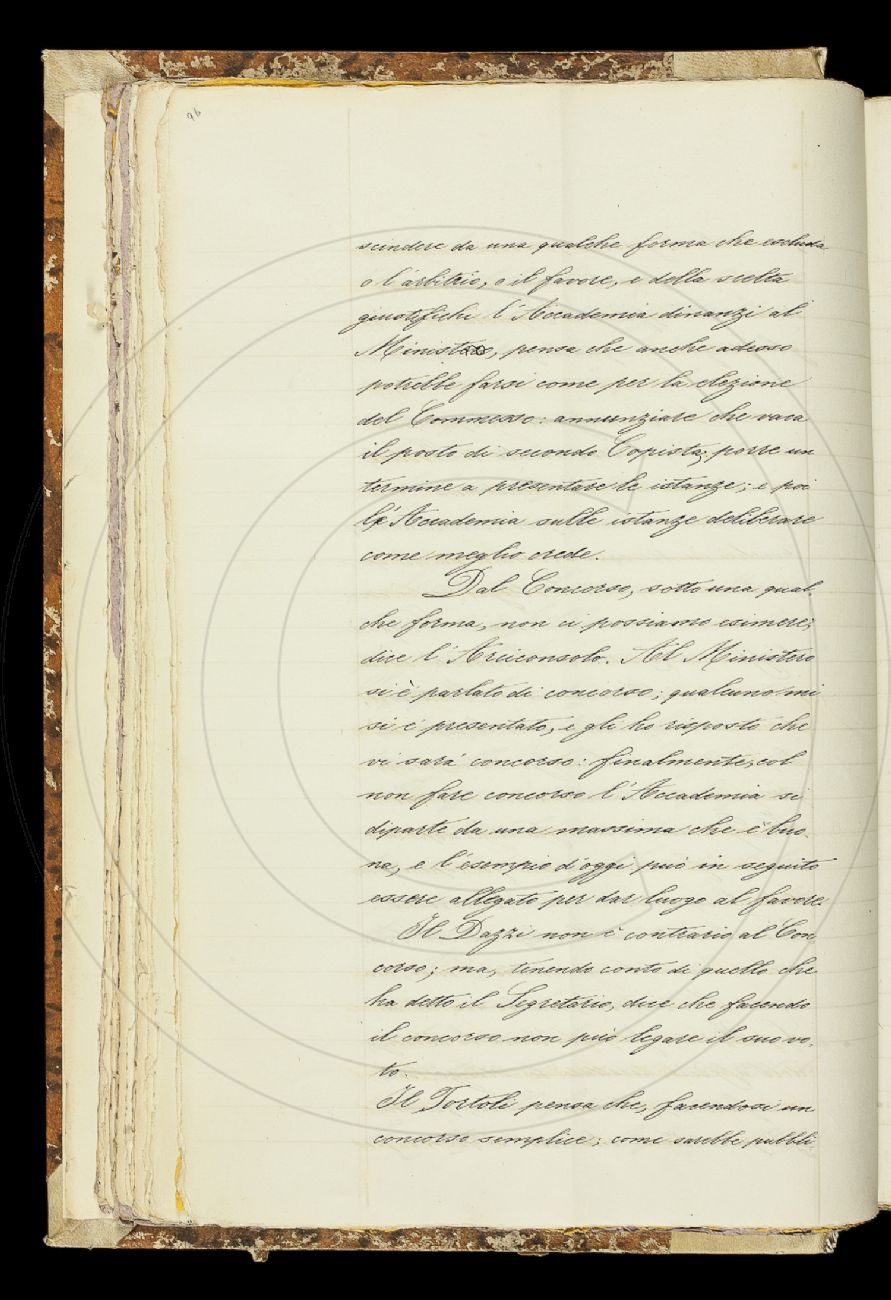 96
scindere da una qualche forma che escluda
o l'arbitrio, o il favore, e della scelta
giustifichi l'Accademia dinanzi al
Ministro, pensa che anche adesso
potrebbe farsi come per la elezione
del Commesso: annunziare che vaca
il posto di secondo Copista; porre un
termine a presentare le istanze; e poi
l'Accademia sulle istanze deliberare
come meglio crede.
Dal Concorso, sotto una qual-
che forma, non ci possiamo esimere;
dice l'Arciconsolo. Al Ministero
si è parlato di concorso; qualcuno mi
si è presentato, e gli ho risposto che
vi sarà concorso: finalmente, col
non fare concorso l'Accademia si
diparte da una massima che è buo-
na, e l'esempio d'oggi può in seguito
essere allegato per dar luogo al favore.
Il Dazzi non è contrario al Con-
corso; ma, tenendo conto di quello che
ha detto il Segretario, dice che facendo
il concorso non può legare il suo vo-
to.
Il Tortoli pensa che, facendosi un
concorso semplice; come sarebbe pubbli-